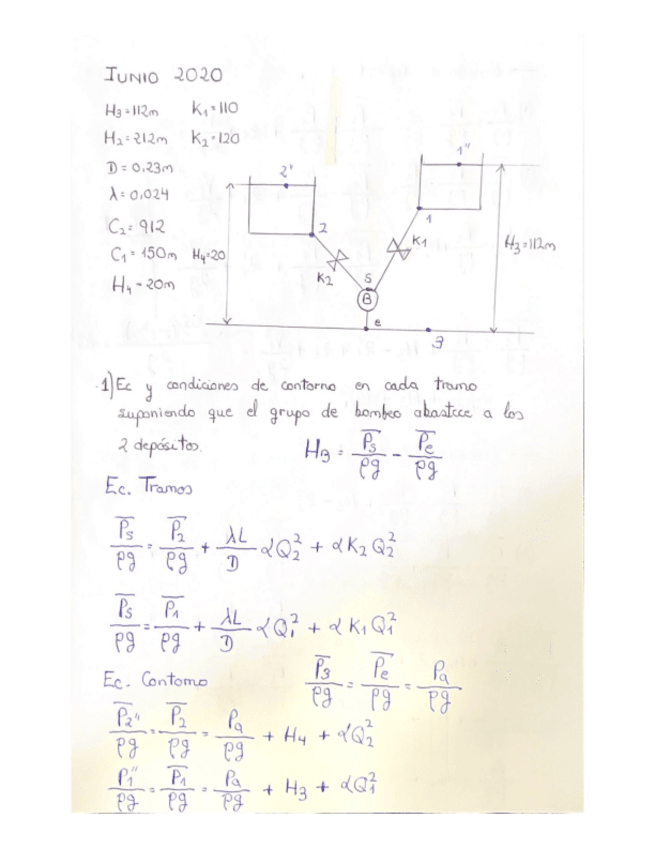 JUNIO 2020
H3=112m K1=110
H2=212m K2=120
D=0,23m
λ=0,024
C2=912
C1=150m H4=20
H4=20m
2"
2
K2
1"
1
K1
S
B
e
3
H3=112m
1) Ec y condiciones de contorno en cada tramo
suponiendo que el grupo de bombeo abastece a los
2 depósitos. HB = P̅s/ρg - P̅e/ρg
Ec. Tramos
P̅s/ρg = P̅2/ρg + λL/D αQ2² + αK2Q2²
P̅s/ρg = P̅1/ρg + λL/D αQ1² + αK1Q1²
Ec. Contorno P̅3/ρg = P̅e/ρg = Pa/ρg
P̅2"/ρg = P̅2/ρg = Pa/ρg + H4 + αQ2²
P̅1"/ρg = P̅1/ρg = Pa/ρg + H3 + αQ1²